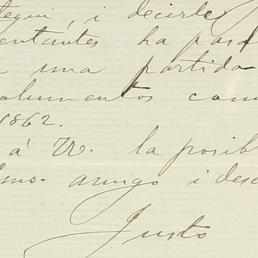 tegui, i decirle
entantes ha pasd
una partida
olumentos com
1862.
á V. la posib
mo. amigo i des
Justo